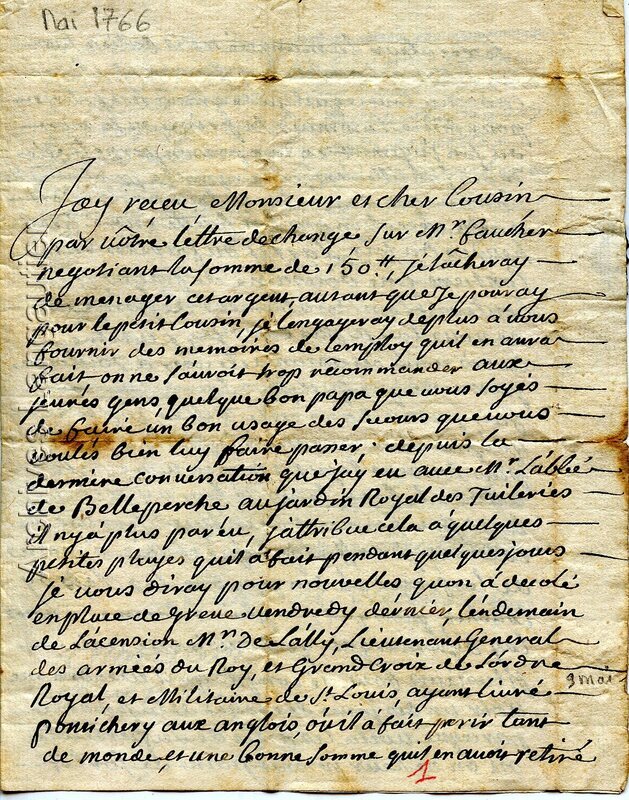 Mai 1766
Jay receu Monsieur et cher Cousin
par vôtre léttre de change sur Mr. faucher
negotiant la somme de 150 ₶, je tâcheray
de menager cet argent, autant que Je pouray
pour le petit Cousin, je l'engageray de plus à vous
fournir des memoires de lemploy quil en aura
fait on ne sauroit trop récommander aux
jeunes gens, quelque bon papa que vous soyés
de fairé ún bon usage des secours que vous
voulés bien luy faire passer. depuis la
derniére conversation que jay eu avec Mr. L'abbé
de Belleperche au jardin Royal des Tuileries
il ny à plus paréu, j'attribue cela à quelques
petites pluyes quil à fait pendant quelques jours
Je vous diray pour nouvelles quon à decolé
en place de Greve vendredy dérnier, léndemain
de L'acension Mr. De Lally, Lieutenant General
des arméés du Roy, et Grand Croix de Lórdre
Royal, et Militaire de St Louis, ayant livré
9 mai
ponuichery aux anglois, óu il à fait perir tant
de monde, et une bonne somme quil en avoit retiré
1
Archives